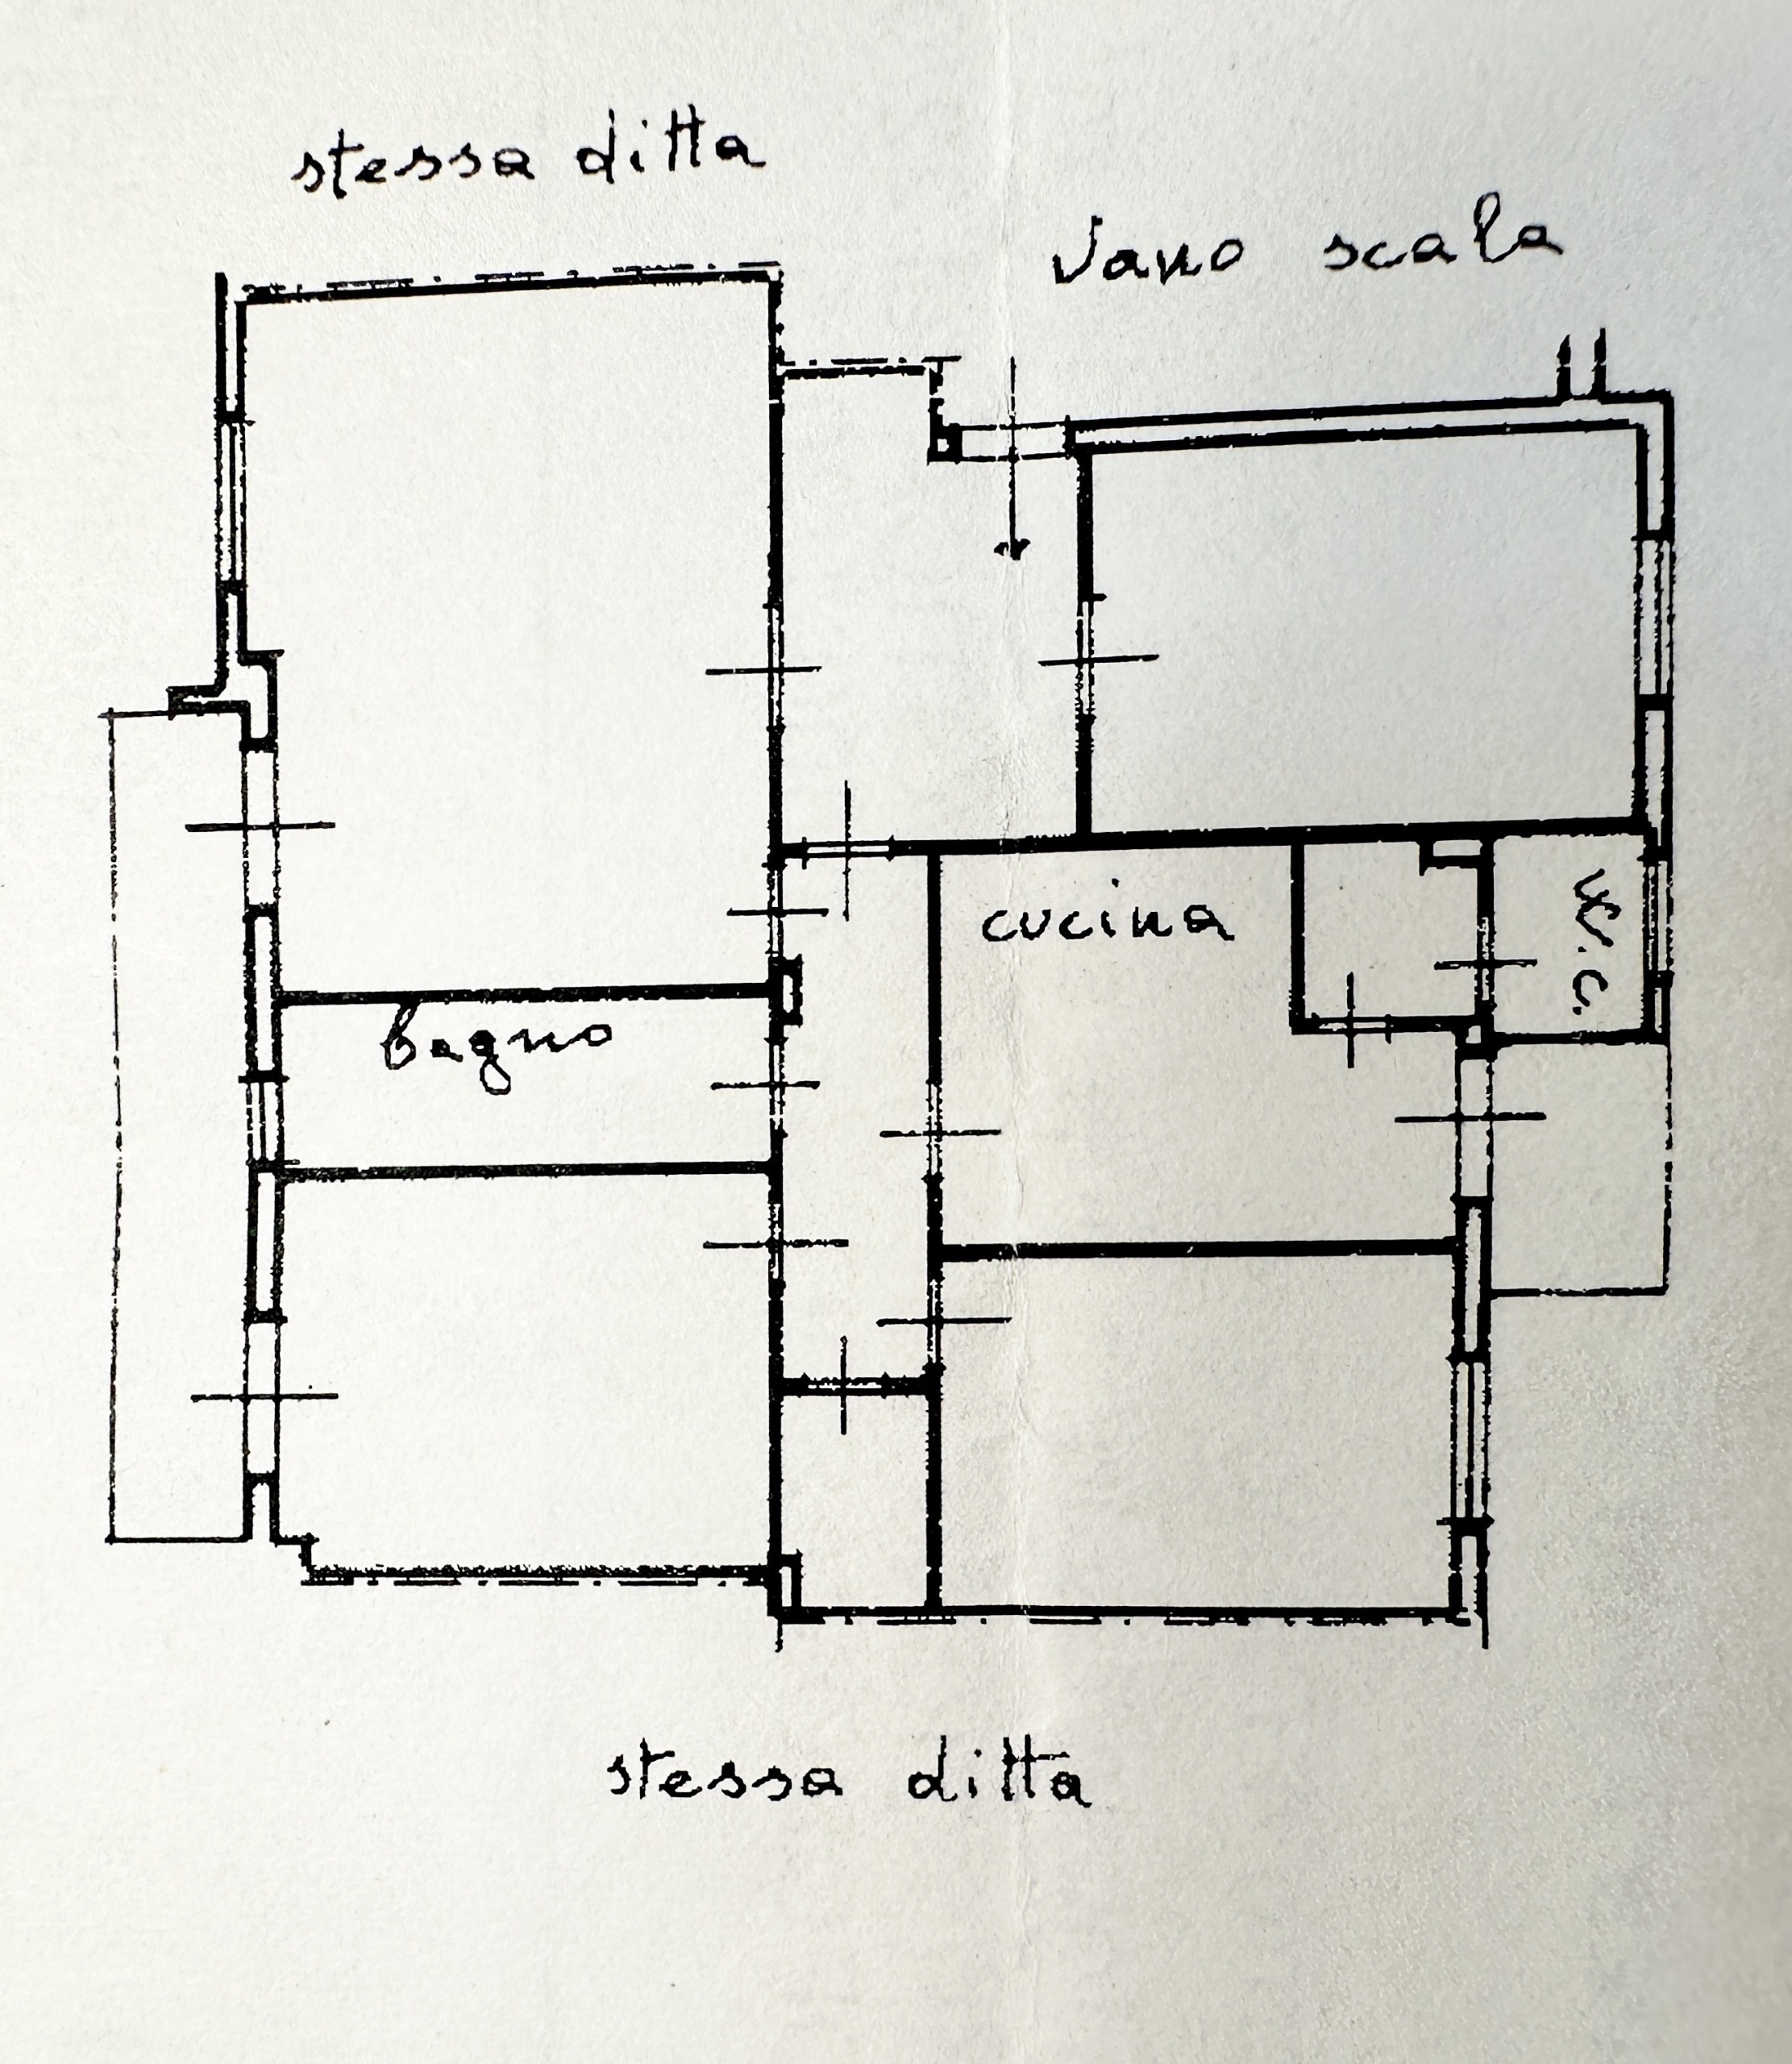 stessa ditta
vano scala
cucina
W.C.
bagno
stessa ditta